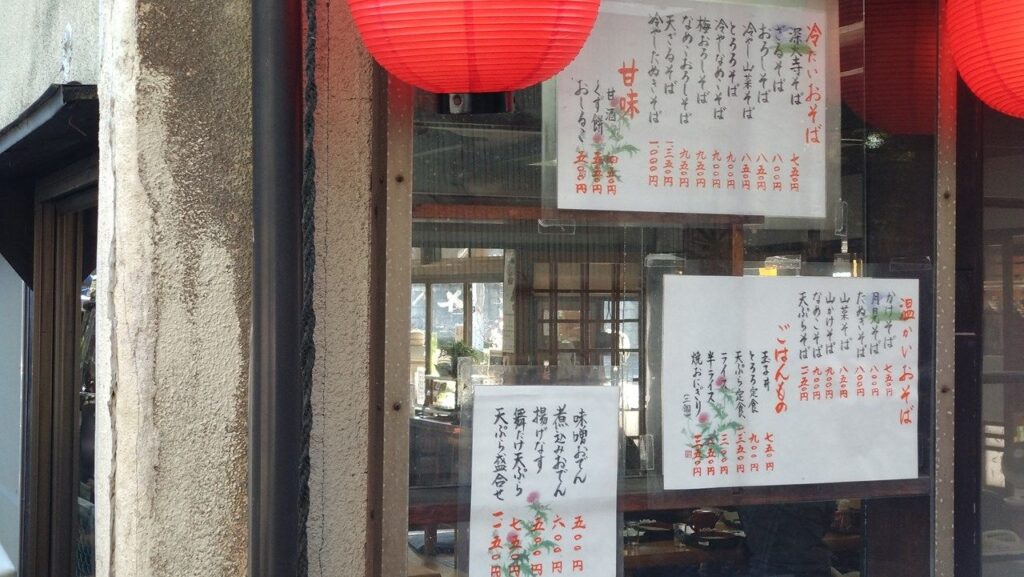 冷たいおそば
深大寺そば 七五〇円
ざるそば 八〇〇円
おろしそば 八五〇円
冷し山菜そば 八五〇円
とろろそば 九〇〇円
冷やしなめこそば 九五〇円
梅おろしそば 九五〇円
なめこおろしそば 九五〇円
天ざるそば 一三五〇円
冷やしたぬきそば 一〇〇〇円
甘味
甘酒
くず餅 五五〇円
おしるこ 五五〇円
温かいおそば
かけそば 七五〇円
月見そば 八〇〇円
たぬきそば 八〇〇円
山菜そば 八五〇円
山かけそば 九〇〇円
なめこそば 九〇〇円
天ぷらそば 一二五〇円
ごはんもの
玉子丼 七五〇円
とろろ定食 九〇〇円
天ぷら定食 一三五〇円
ライス 三〇〇円
半ライス 二五〇円
焼おにぎり 三五〇円
味噌おでん 五〇〇円
煮込みおでん 六〇〇円
揚げなす 五〇〇円
舞たけ天ぷら 七五〇円
天ぷら盛合せ 一一五〇円